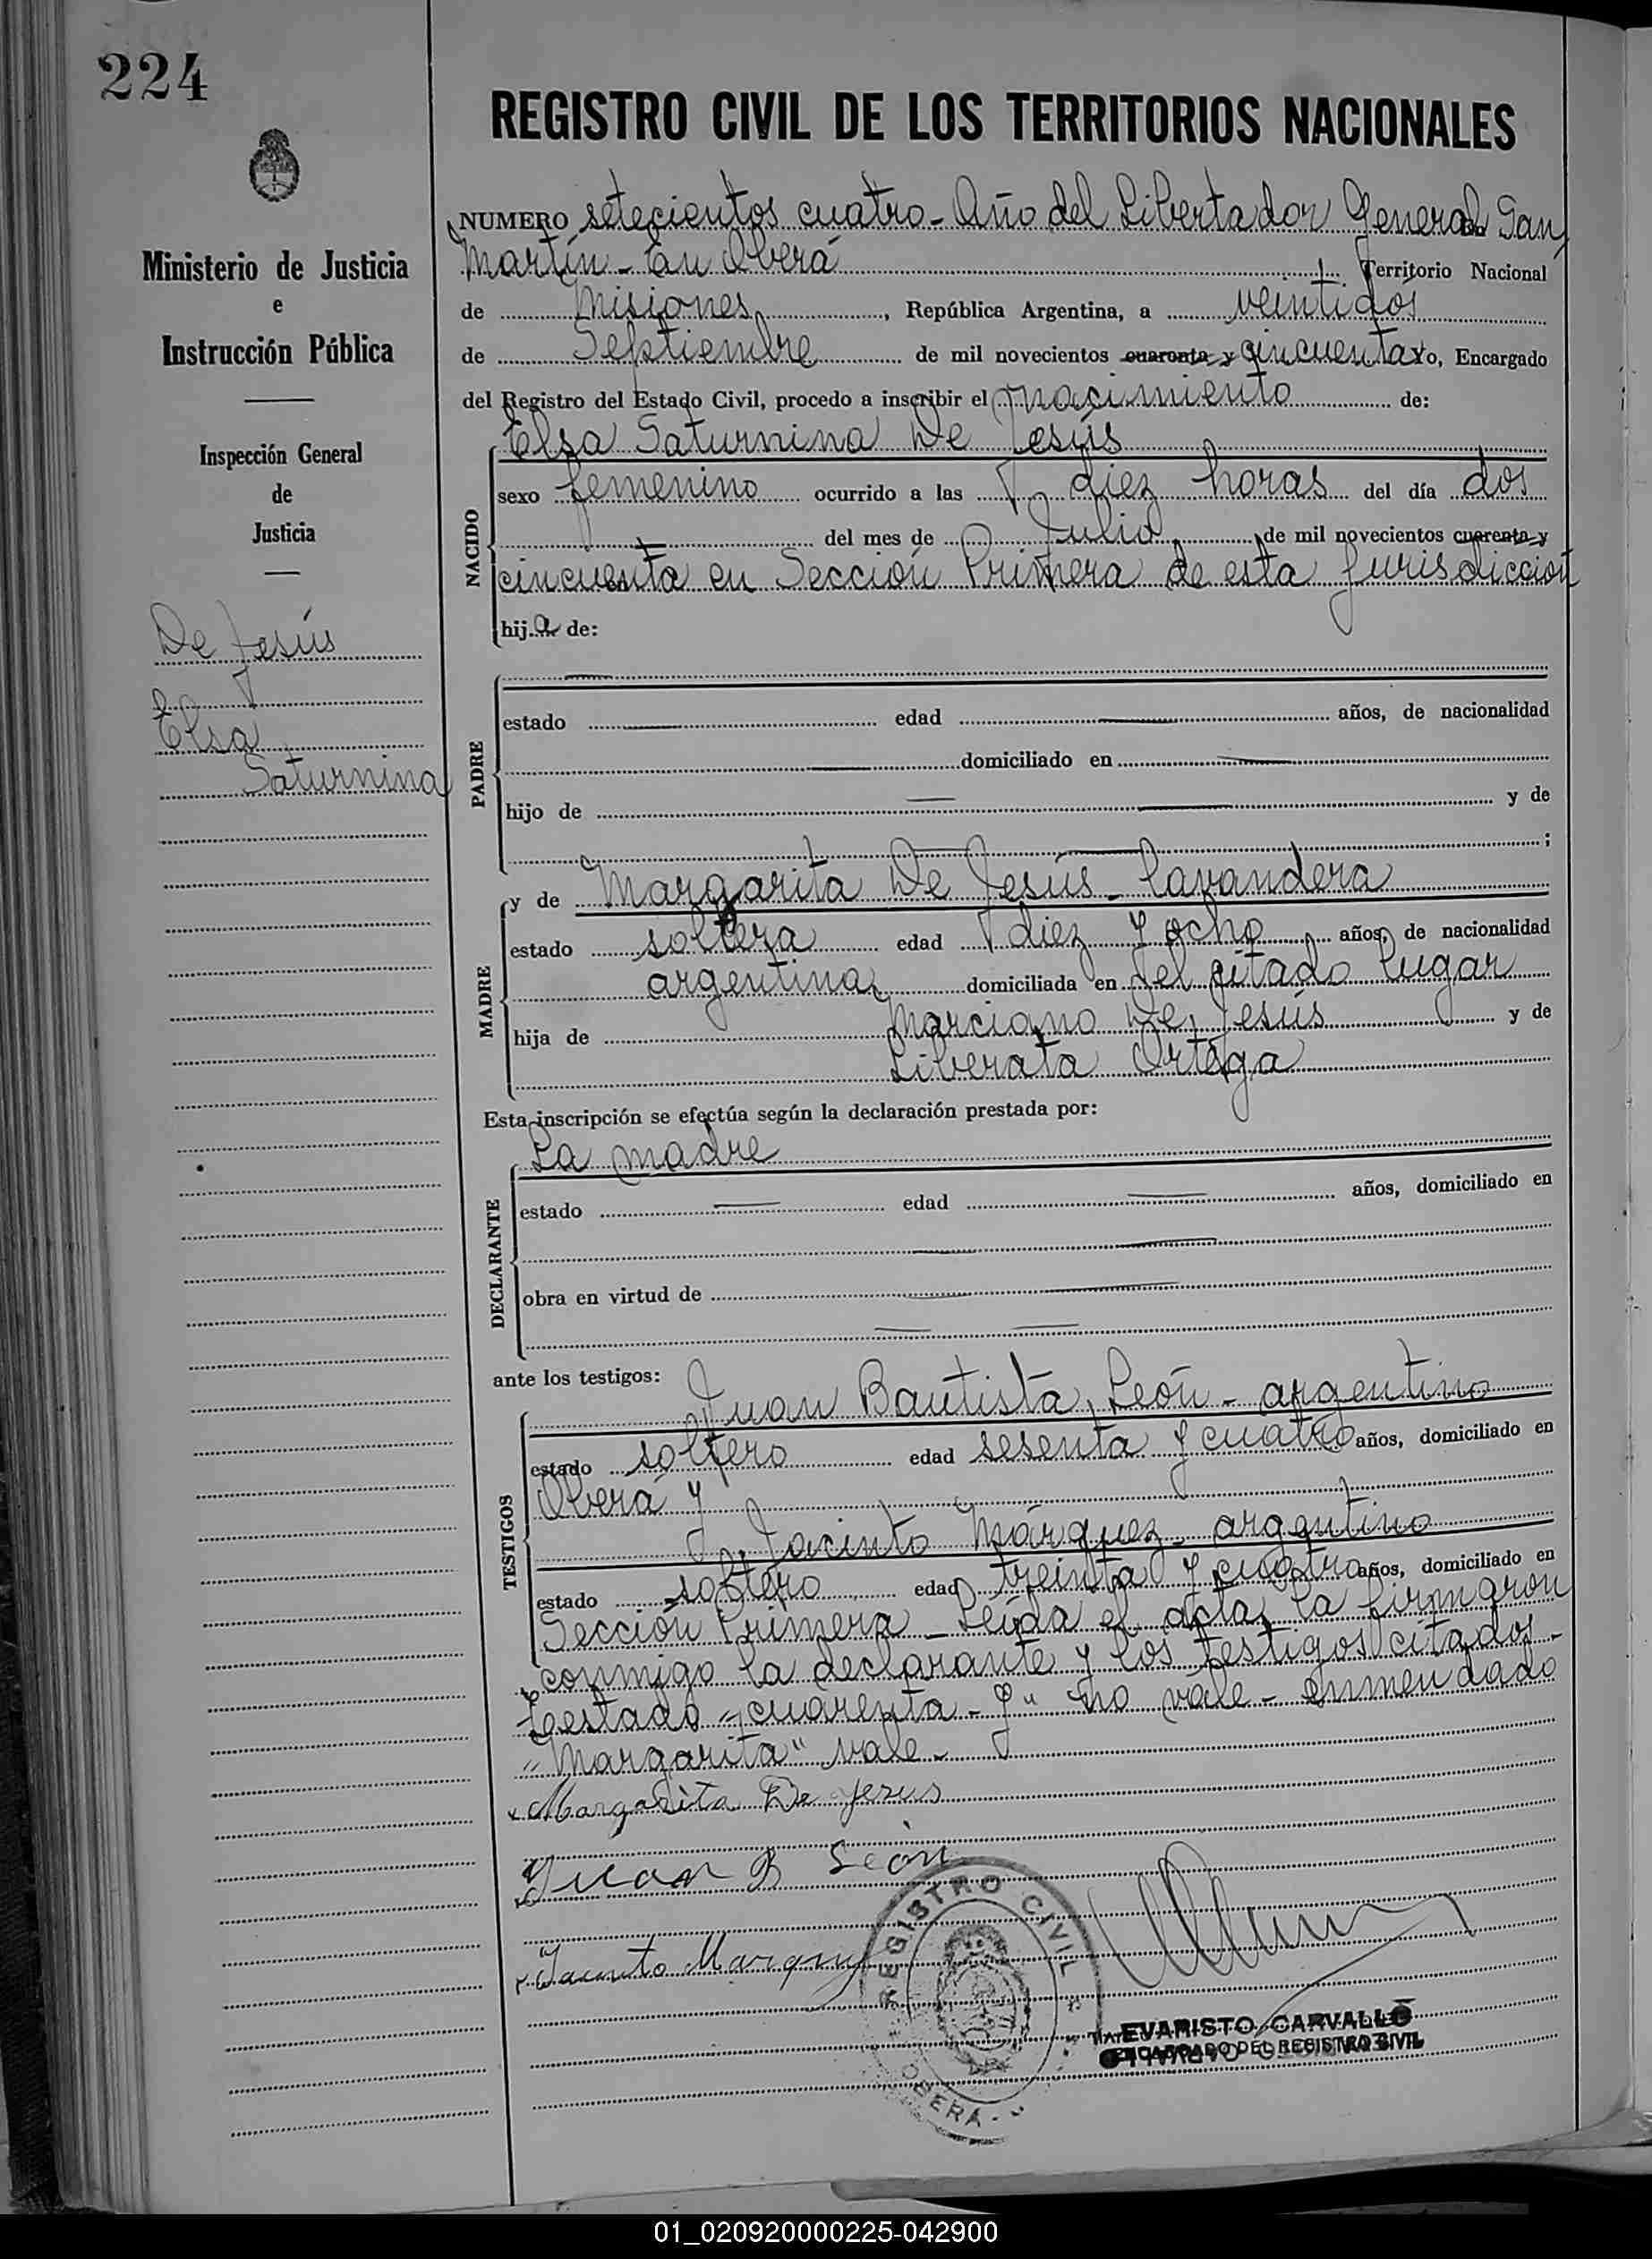 224
REGISTRO CIVIL DE LOS TERRITORIOS NACIONALES
Ministerio de Justicia
e
Instrucción Pública
Inspección General
de
Justicia
De Jesús
Elsa
Saturnina
NUMERO setecientos cuatro - Año del Libertador General San
Martín - En Oberá Territorio Nacional
de Misiones, República Argentina, a veintidós
de Septiembre de mil novecientos cuarenta y cincuenta yo, Encargado
del Registro del Estado Civil, procedo a inscribir el nacimiento de:
Elsa Saturnina De Jesús
NACIDO
sexo femenino ocurrido a las diez horas del día dos
del mes de Julio de mil novecientos cuarenta y
cincuenta en Sección Primera de esta jurisdicción
hija de:
PADRE
estado edad años, de nacionalidad
domiciliado en
hijo de y de
;
y de Margarita De Jesús - lavandera
MADRE
estado soltera edad diez y ocho años, de nacionalidad
argentina domiciliada en el citado lugar
hija de Marciano De Jesús y de
Liberata Ortega
Esta inscripción se efectúa según la declaración prestada por:
La madre
DECLARANTE
estado edad años, domiciliado en
obra en virtud de
ante los testigos:
Juan Bautista León - argentino
TESTIGOS
estado soltero edad sesenta y cuatro años, domiciliado en
Oberá y
Jacinto Márquez - argentino
estado soltero edad treinta y cuatro años, domiciliado en
Sección Primera - Leída el acta, la firmaron
conmigo la declarante y los testigos citados -
Testado "cuarenta - y" no vale - enmendado
"Margarita" vale -
Margarita De Jesus
Juan B León
Jacinto Marquez
REGISTRO CIVIL
OBERÁ
EVARISTO CARVALLO
ENCARGADO DEL REGISTRO CIVIL
01_020920000225-042900